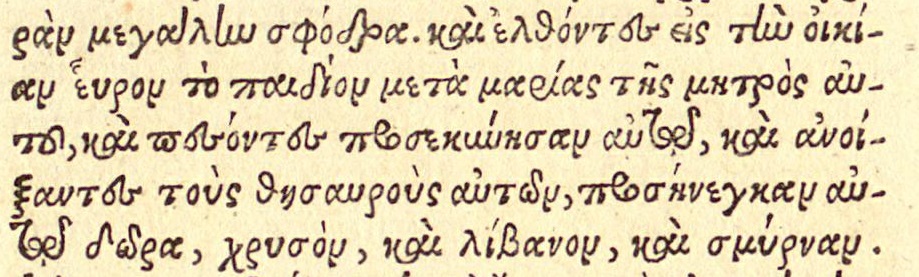 ρὰν μεγάλην σφόδρα. καὶ ἐλθόντες εἰς τὴν οἰκί-
αν εὗρον τὸ παιδίον μετὰ μαρίας τῆς μητρὸς αὐ-
του, καὶ πεσόντες προσεκύνησαν αὐτῷ, καὶ ἀνοί-
ξαντες τοὺς θησαυροὺς αὐτῶν, προσήνεγκαν αὐ-
τῷ δῶρα, χρυσὸν, καὶ λίβανον, καὶ σμύρναν.